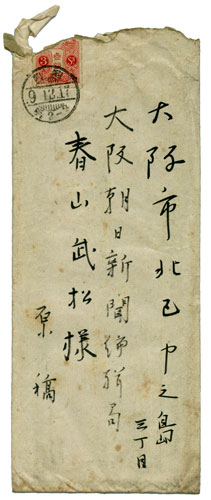 大阪市北区中之島
三丁目
大阪朝日新聞編輯局
春山武松様
原稿
3
9.12.17